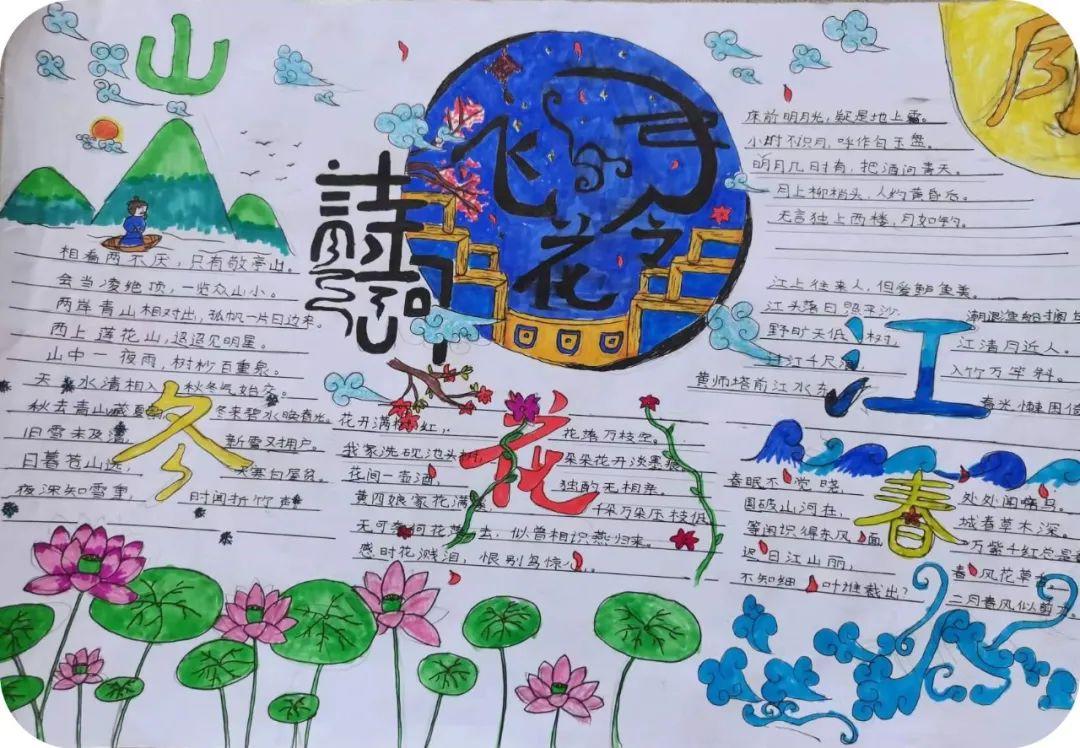 山
相看两不厌，只有敬亭山。
会当凌绝顶，一览众山小。
两岸青山相对出，孤帆一片日边来。
西上莲花山，迢迢见明星。
山中一夜雨，树杪百重泉。
诗词
飞花令
月
床前明月光，疑是地上霜。
小时不识月，呼作白玉盘。
明月几时有，把酒问青天。
月上柳梢头，人约黄昏后。
无言独上西楼，月如钩。
江
江上往来人，但爱鲈鱼美。
江头落日照平沙，潮退渔船搁
野旷天低树，江清月近人。
过江千尺浪，入竹万竿斜。
黄师塔前江水东，春光懒困
冬
天水清相入，秋冬气始交。
秋去青山藏夏，冬来碧水映春光。
旧雪未及消，新雪又拥户。
日暮苍山远，天寒白屋贫。
夜深知雪重，时闻折竹声
花
花开满树红，花落万枝空。
我家洗砚池头树，朵朵花开淡墨痕
花间一壶酒，独酌无相亲。
黄四娘家花满蹊，千朵万朵压枝低
无可奈何花落去，似曾相识燕归来。
感时花溅泪，恨别鸟惊心。
春
春眠不觉晓，处处闻啼鸟。
国破山河在，城春草木深。
等闲识得东风面，万紫千红总是春
迟日江山丽，春风花草香
不知细叶谁裁出？二月春风似剪刀。